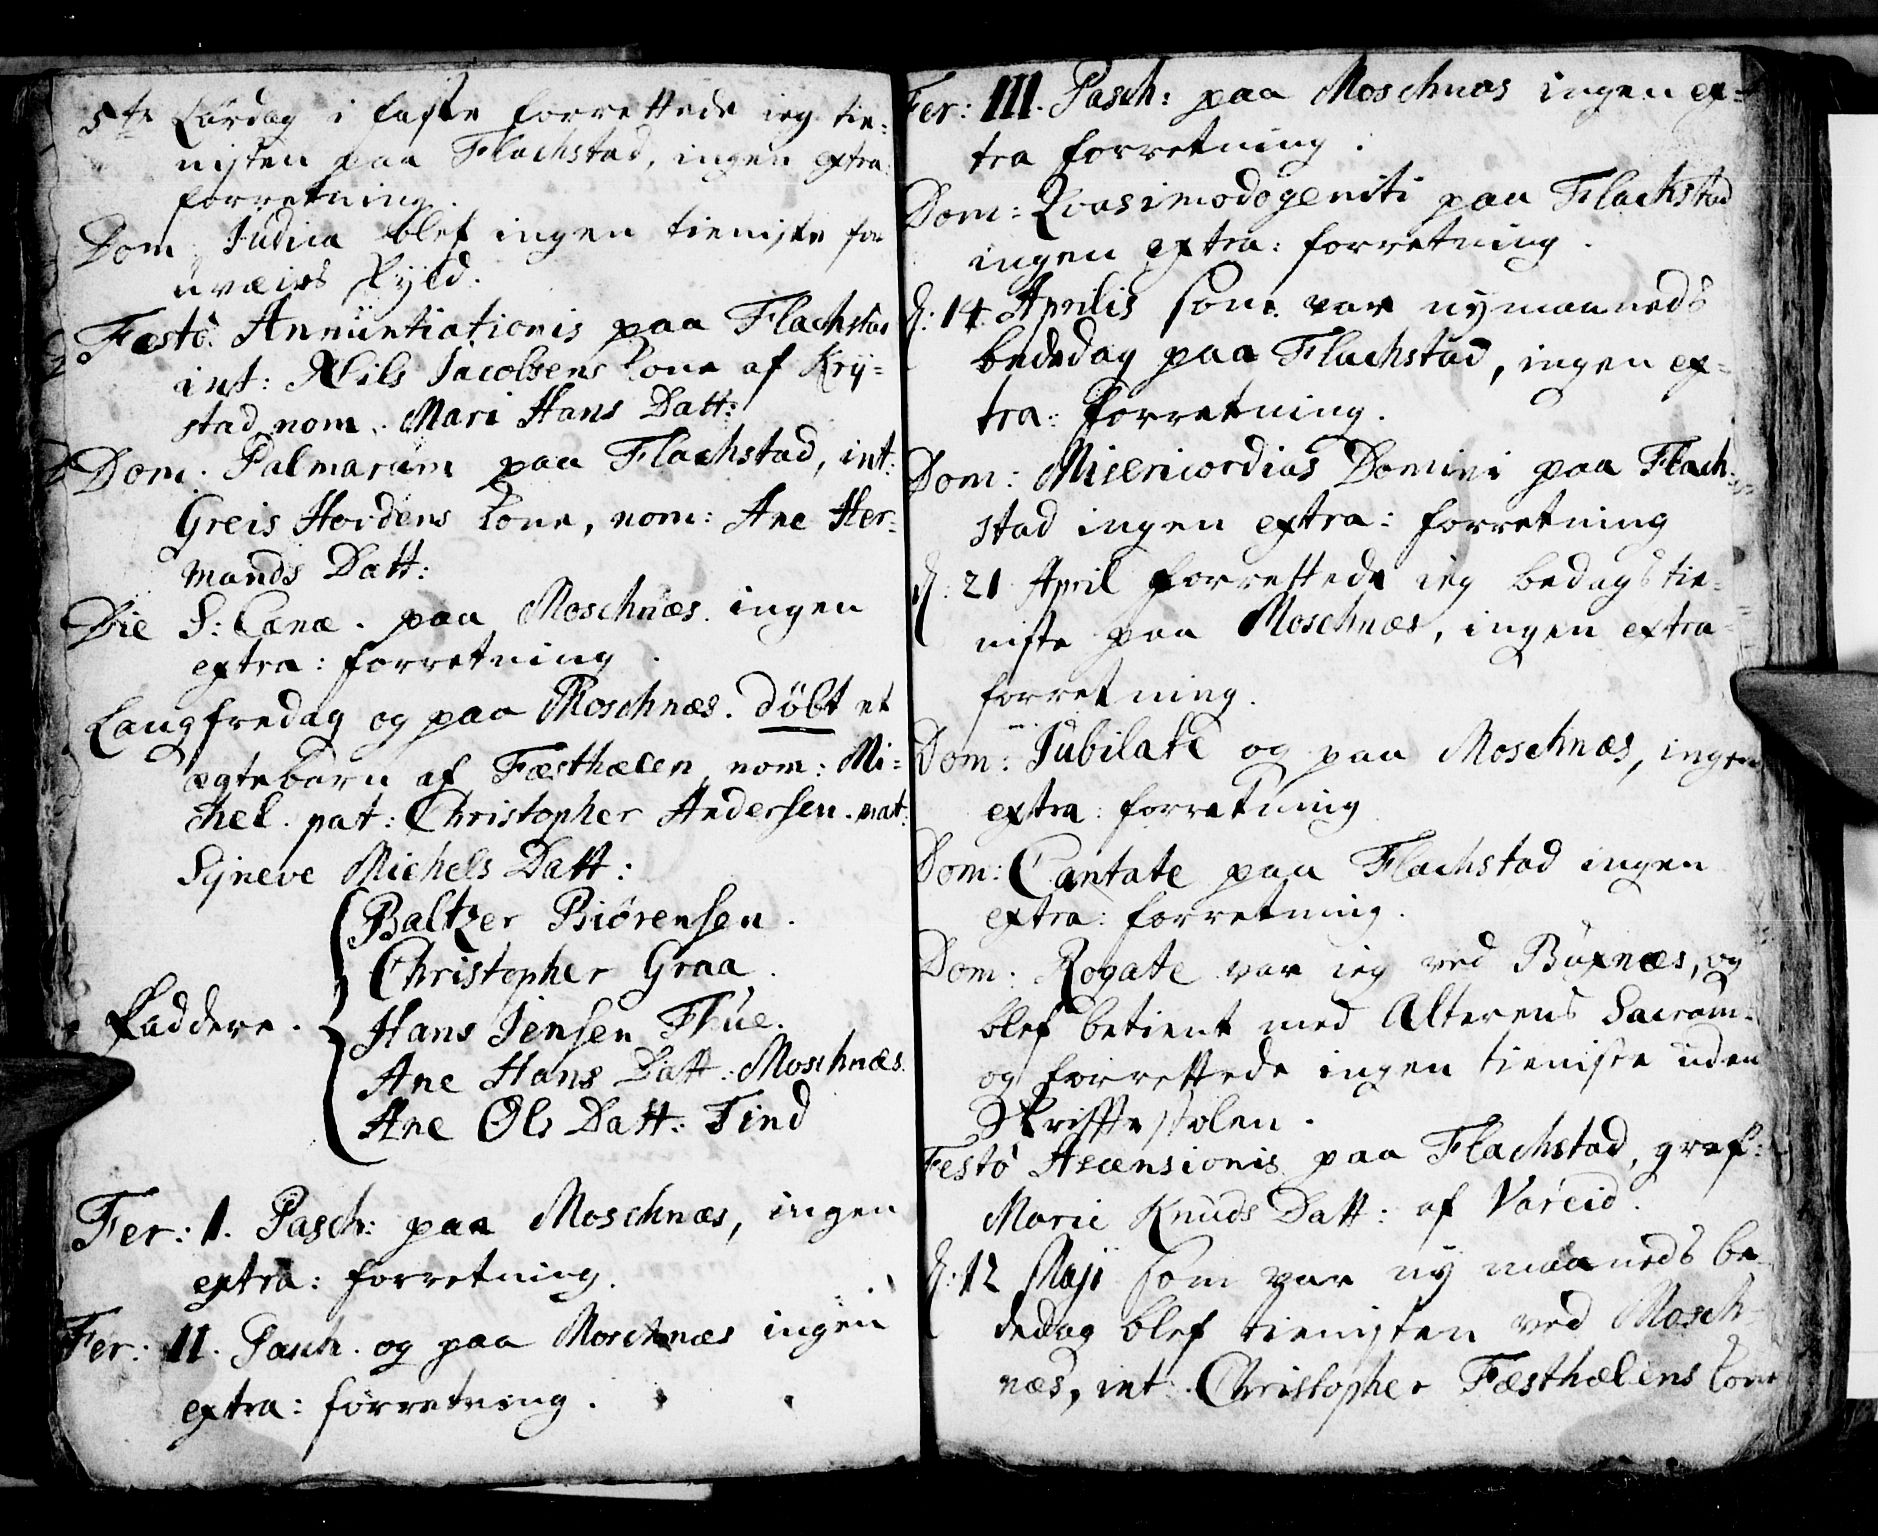 5te Lørdag i faste forrettede ieg tie-
nisten paa Flachstad, ingen extra
forretning.
Dom. Judica blef ingen tieniste for
uværs skyld.
Festo Annuntiationis paa Flachstad
int: Nils Jacobsens Kone af Kry=
stad nom. Mari Hans Datt:
Dom. Palmarum paa Flachstad, int:
Greis Hordens Kone, nom: Ane Her-
mands Datt:
Die S: Cænæ. paa Moschnæs. ingen
extra: forretning.
Langfredag og paa Moschnæs. døbt et
ægtebarn af Fæsthælen, nom: Mi=
chel. pat: Christopher Andersen. mat:
Syneve Michels Datt:
Baltzer Biørensen.
Christopher Graa.
Faddere. Hans Jensen Thue.
Ane Hans Datt: Moschnæs.
Ane Ols Datt: Tind
Fer: I. Pasch: paa Moschnæs, ingen
extra: forretning.
Fer: II. Pasch. og paa Moschnæs ingen
extra: forretning.
Fer: III. Pasch: paa Moschnæs ingen ex=
tra forretning.
Dom: Qvasimodogeniti paa Flachstad
ingen extra: forretning.
d: 14 Aprilis som var nymaaneds
bededag paa Flachstad, ingen ex=
tra: forretning.
Dom: Misericordias Domini paa Flach-
stad ingen extra: forretning
d: 21 April forrettede ieg bedags tie=
niste paa Moschnæs, ingen extra
forretning.
Dom: Jubilate og paa Moschnæs, ingen
extra: forretning
Dom: Cantate paa Flachstad ingen
extra: forretning.
Dom: Rogate var ieg ved Buxnæs, og
blef betient med Alterens Sacram:
og forrettede ingen tieniste uden
Skriftestolen.
Festo Ascensionis paa Flachstad, graf:
Marie Knuds Datt: af Vareid.
d: 12 Maji som var ny maaneds be-
dedag blef tienisten ved Mosch-
næs, int: Christopher Fæsthælens Kone